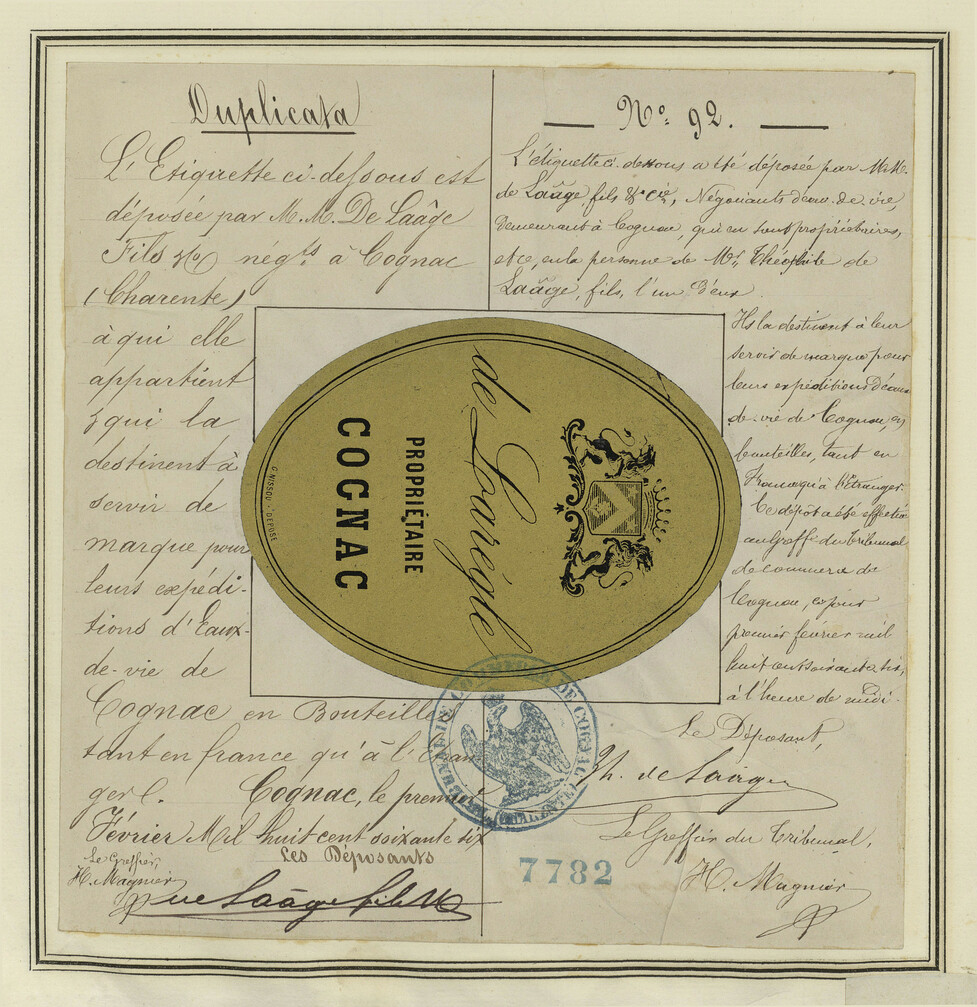 Duplicata
L'Etiquette ci-dessous est
déposée par M. M. De Laâge
Fils & Co négts à Cognac
(Charente)
à qui elle
appartient
& qui la
destinent à
servir de
marque pour
leurs expédi-
tions d'Eaux-
de-vie de
Cognac en Bouteilles
tant en france qu'à l'étran
ger.
Cognac, le premier
Février Mil huit cent soixante dix
Les Déposants
Le Greffier,
H. Magnier
De Laâge fils & Co
No. 92.
L'étiquette ci-dessous a été déposée par M.M.
de Laâge fils & cie, Négociants d'eau-de-vie,
demeurant à Cognac, qui en sont propriétaires,
et ce, en la personne de Mr. Théophile de
Laâge, fils, l'un d'eux.
Ils la destinent à leur
servir de marque pour
leurs expéditions d'eaux
de-vie de Cognac, en
bouteilles, tant en
France qu'à l'Etranger.
Ce dépôt a été effectué
au Greffe du Tribunal
de commerce de
Cognac, ce jour
premier février mil
huit cent soixante dix,
à l'heure de midi.
Le Déposant,
Th. de Laâge
Le Greffier du Tribunal,
H. Magnier
de Loreigle
PROPRIÉTAIRE
COGNAC
G. NISSOU - DEPOSE
TRIBUNAL DE COMMERCE DE COGNAC (CHARENTE)
7782